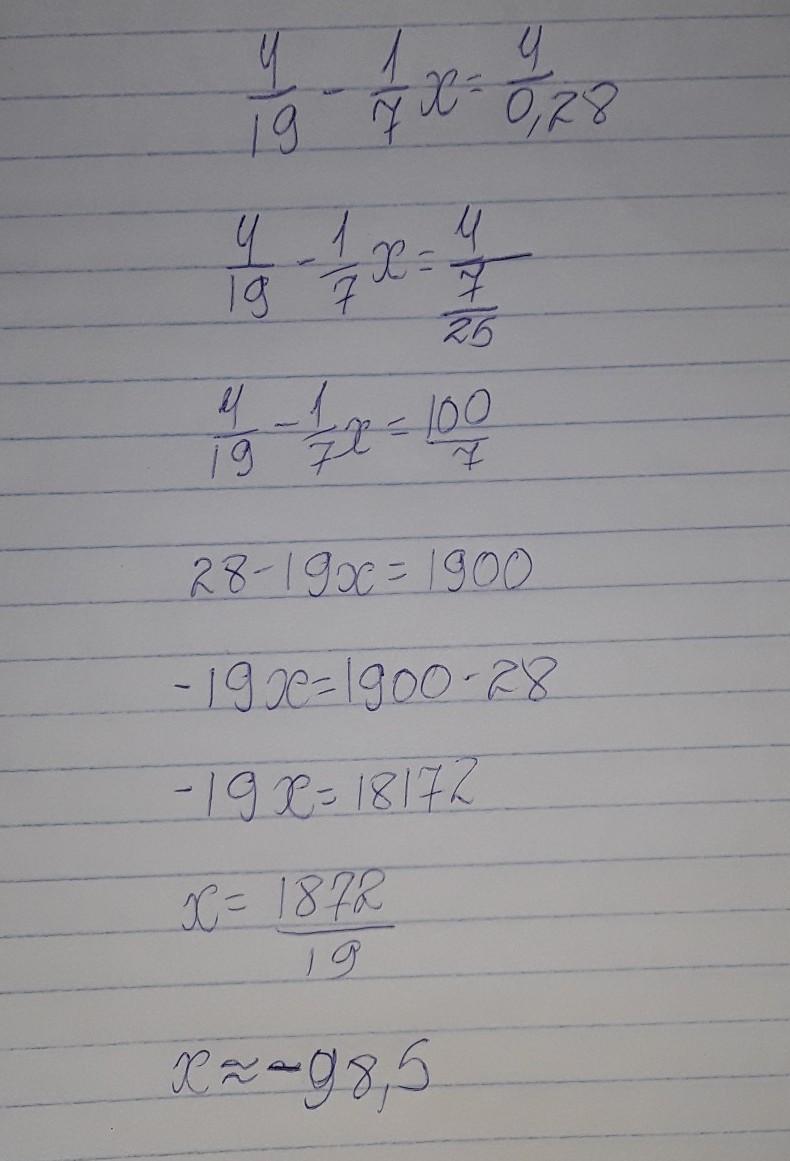 4/19 - 1/7 x = 4/0,28
4/19 - 1/7 x = 4/(7/25)
4/19 - 1/7 x = 100/7
28 - 19x = 1900
-19x = 1900 - 28
-19x = 18172
x = 1872/19
x ≈ -98,5